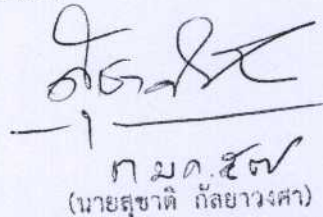 ๓ ม.ค. ๕๗
(นายสุชาติ กัลยาวงศา)